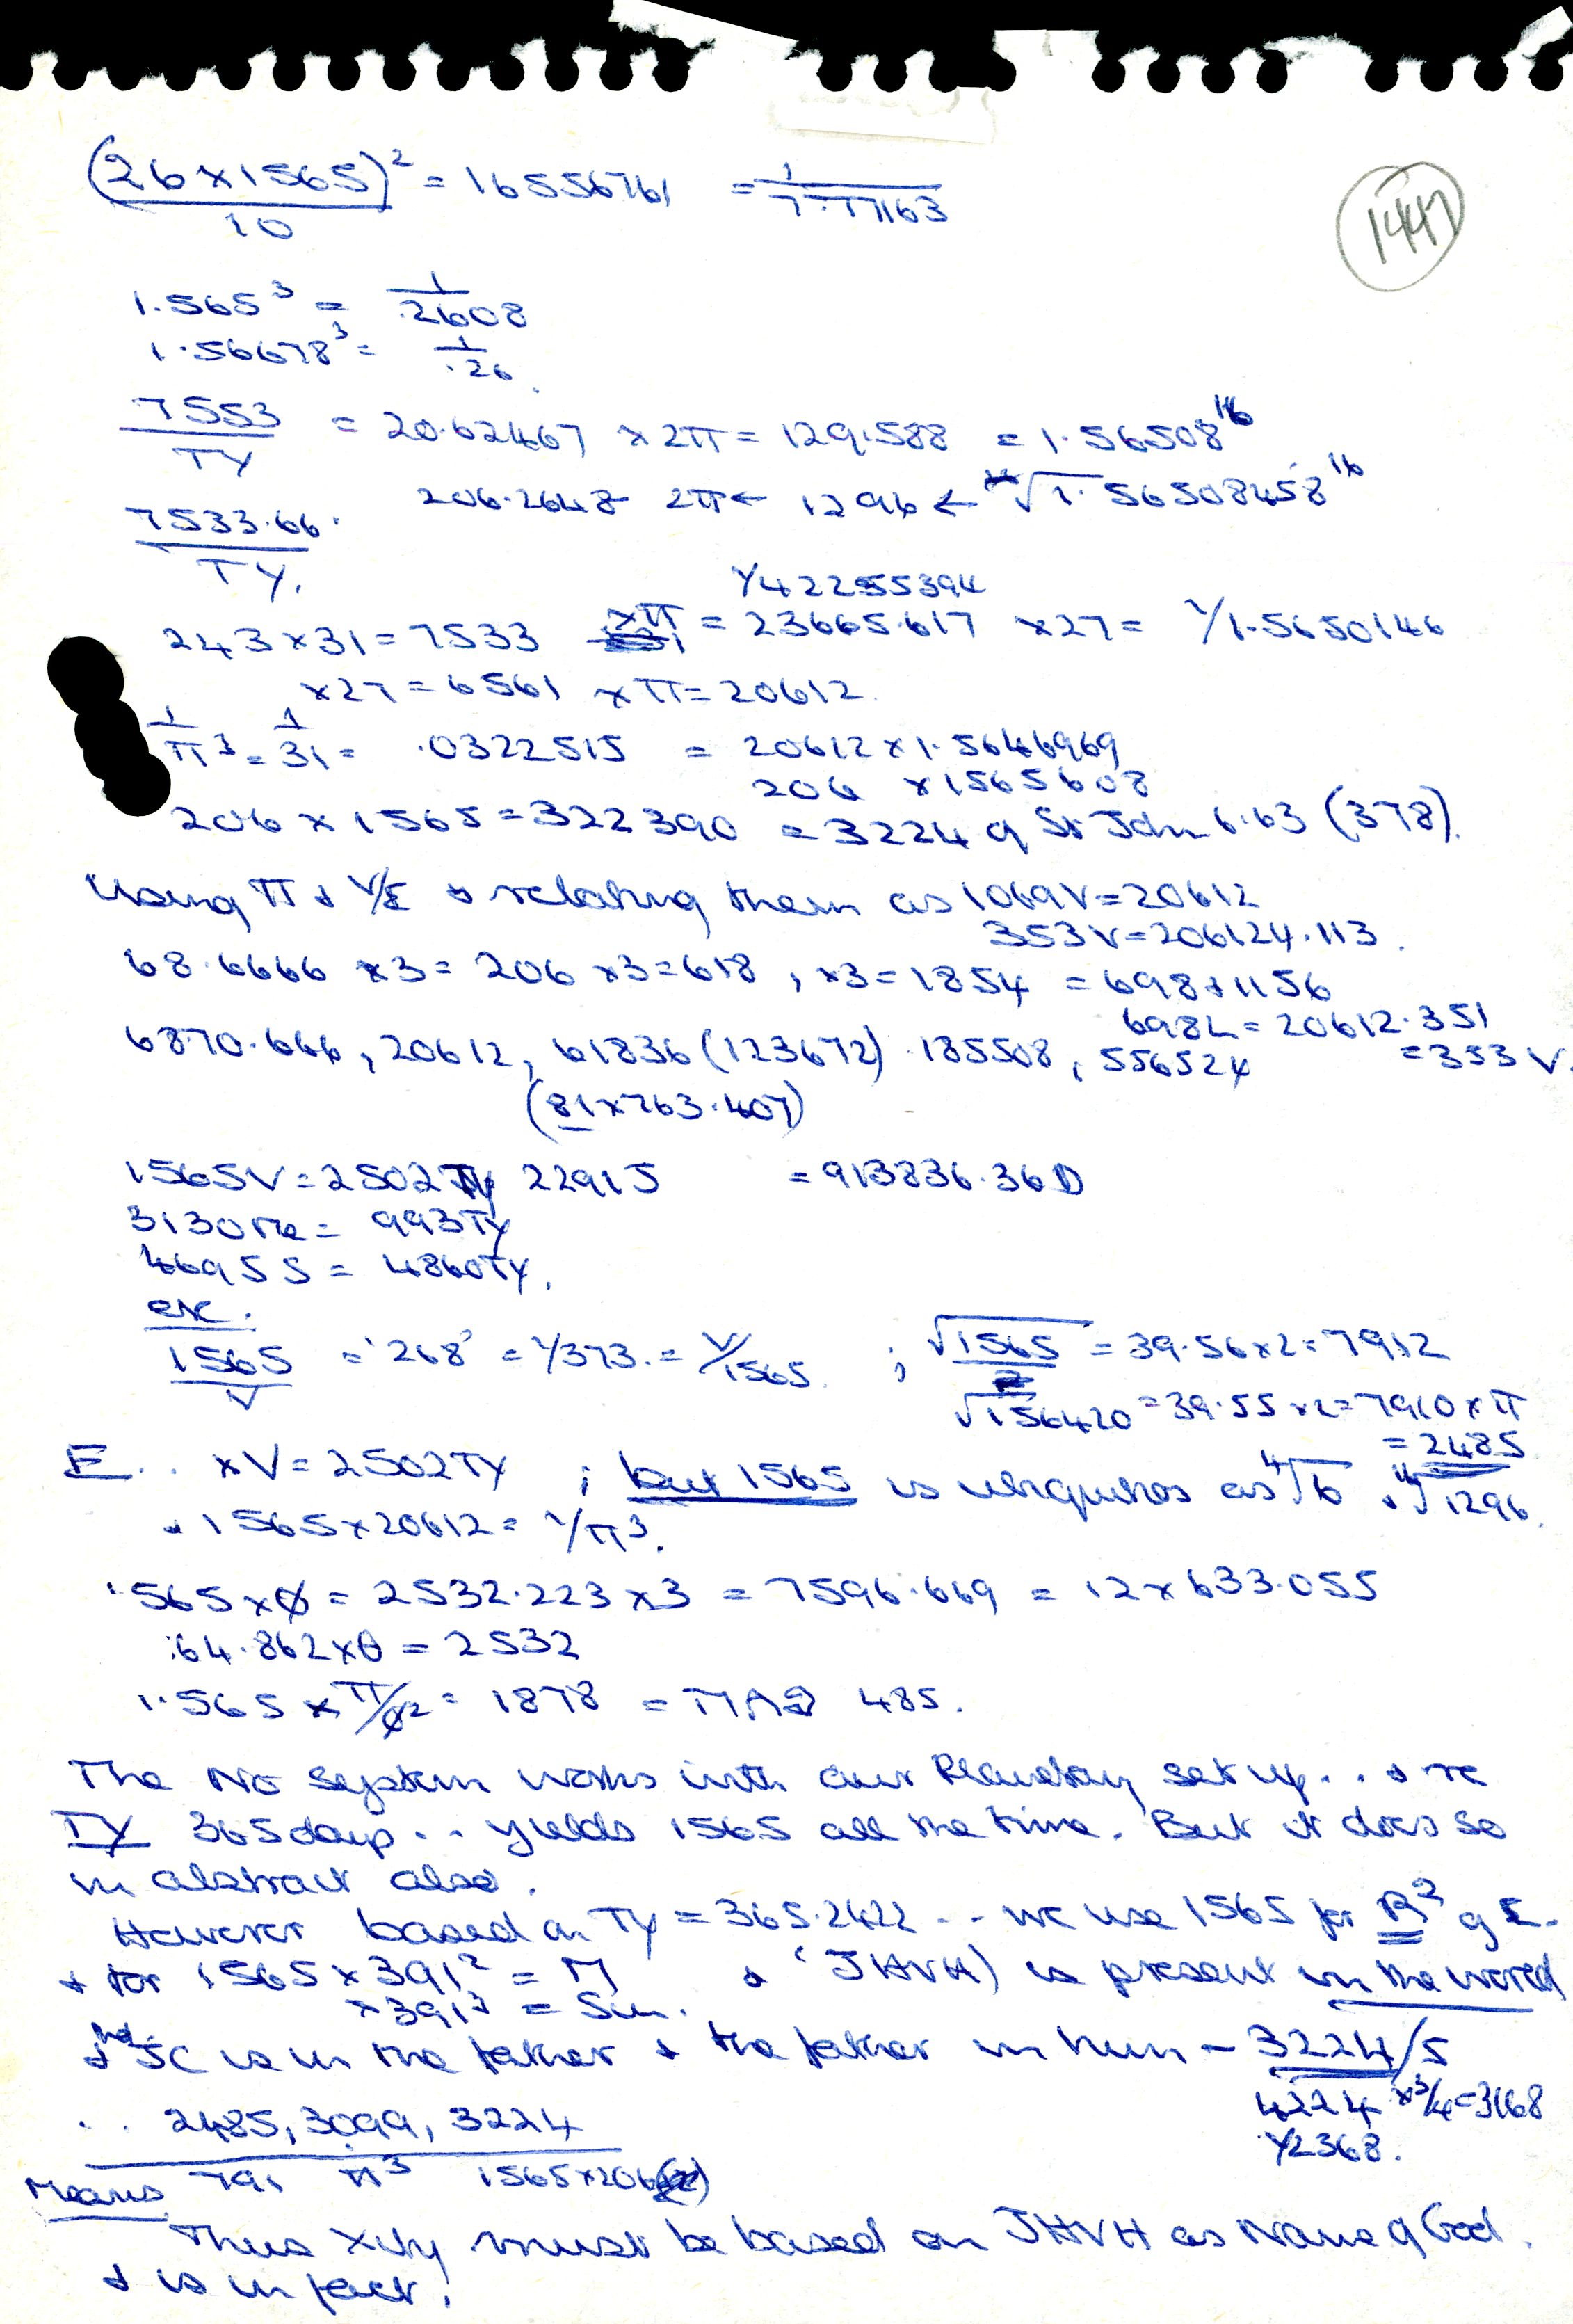 (26×1565)² = 16556761 = 1/7.77163
10
1447
1.565³ = 1/.2608
1.56678³ = 1/.26
7553/TY = 20.62467 ×2π = 129.588 = 1.56508¹⁶
206.2648 2π← 1296 ← √1.56508458¹⁶
7533.66/TY.
1/42255394
243×31=7533 ×π = 23665.617 ×27 = 1/1.5650146
×27=6561 ×π=20612.
1/π³ = 1/31 = .0322515 = 20612×1.5646969
206 ×1565608
206×1565=322390 = 3224 of St John 6.63 (378).
Using π & V/E & relating them as 1069V=20612
353V=206124.113.
68.6666 ×3= 206 ×3=618, ×3=1854 = 698+1156
698L=20612.351
=353V.
6870.666, 20612, 61836 (123672) 185508, 556524
(81×763.407)
1565V=2502TY 2291J = 913836.36D
3130Me = 993TY
4695S = 4860TY.
etc.
1565/V = '268' = 1/373. = V/1565. ; √1565 = 39.56×2=7912
√156420 = 39.55×2=7910×π
=2485
E.. ×V=2502TY ; but 1565 is ubiquitous as ⁴√6 & ¹⁶√1296.
& 1565×20612= 1/π³.
1565×ø = 2532.223×3 = 7596.669 = 12×633.055
:64.862×θ = 2532
1.565×π/ø² = 1878 = 485.
The No system works with our Planetary set up.. & re
TY 365days.. yields 1565 all the time. But it does so
in abstract also.
However based on TY = 365.2422.. we use 1565 for R² of E.
& for 1565×391² = M & (JHVH) is present in the word
×391³ = Sun.
& JC is in the father & the father in him – 3224/5
4224 ×3/4=3168
1/2368.
.. 2485, 3099, 3224
Means 791 π³ 1565×206
Thus Xity must be based on JHVH as Name of God.
& is in fact.